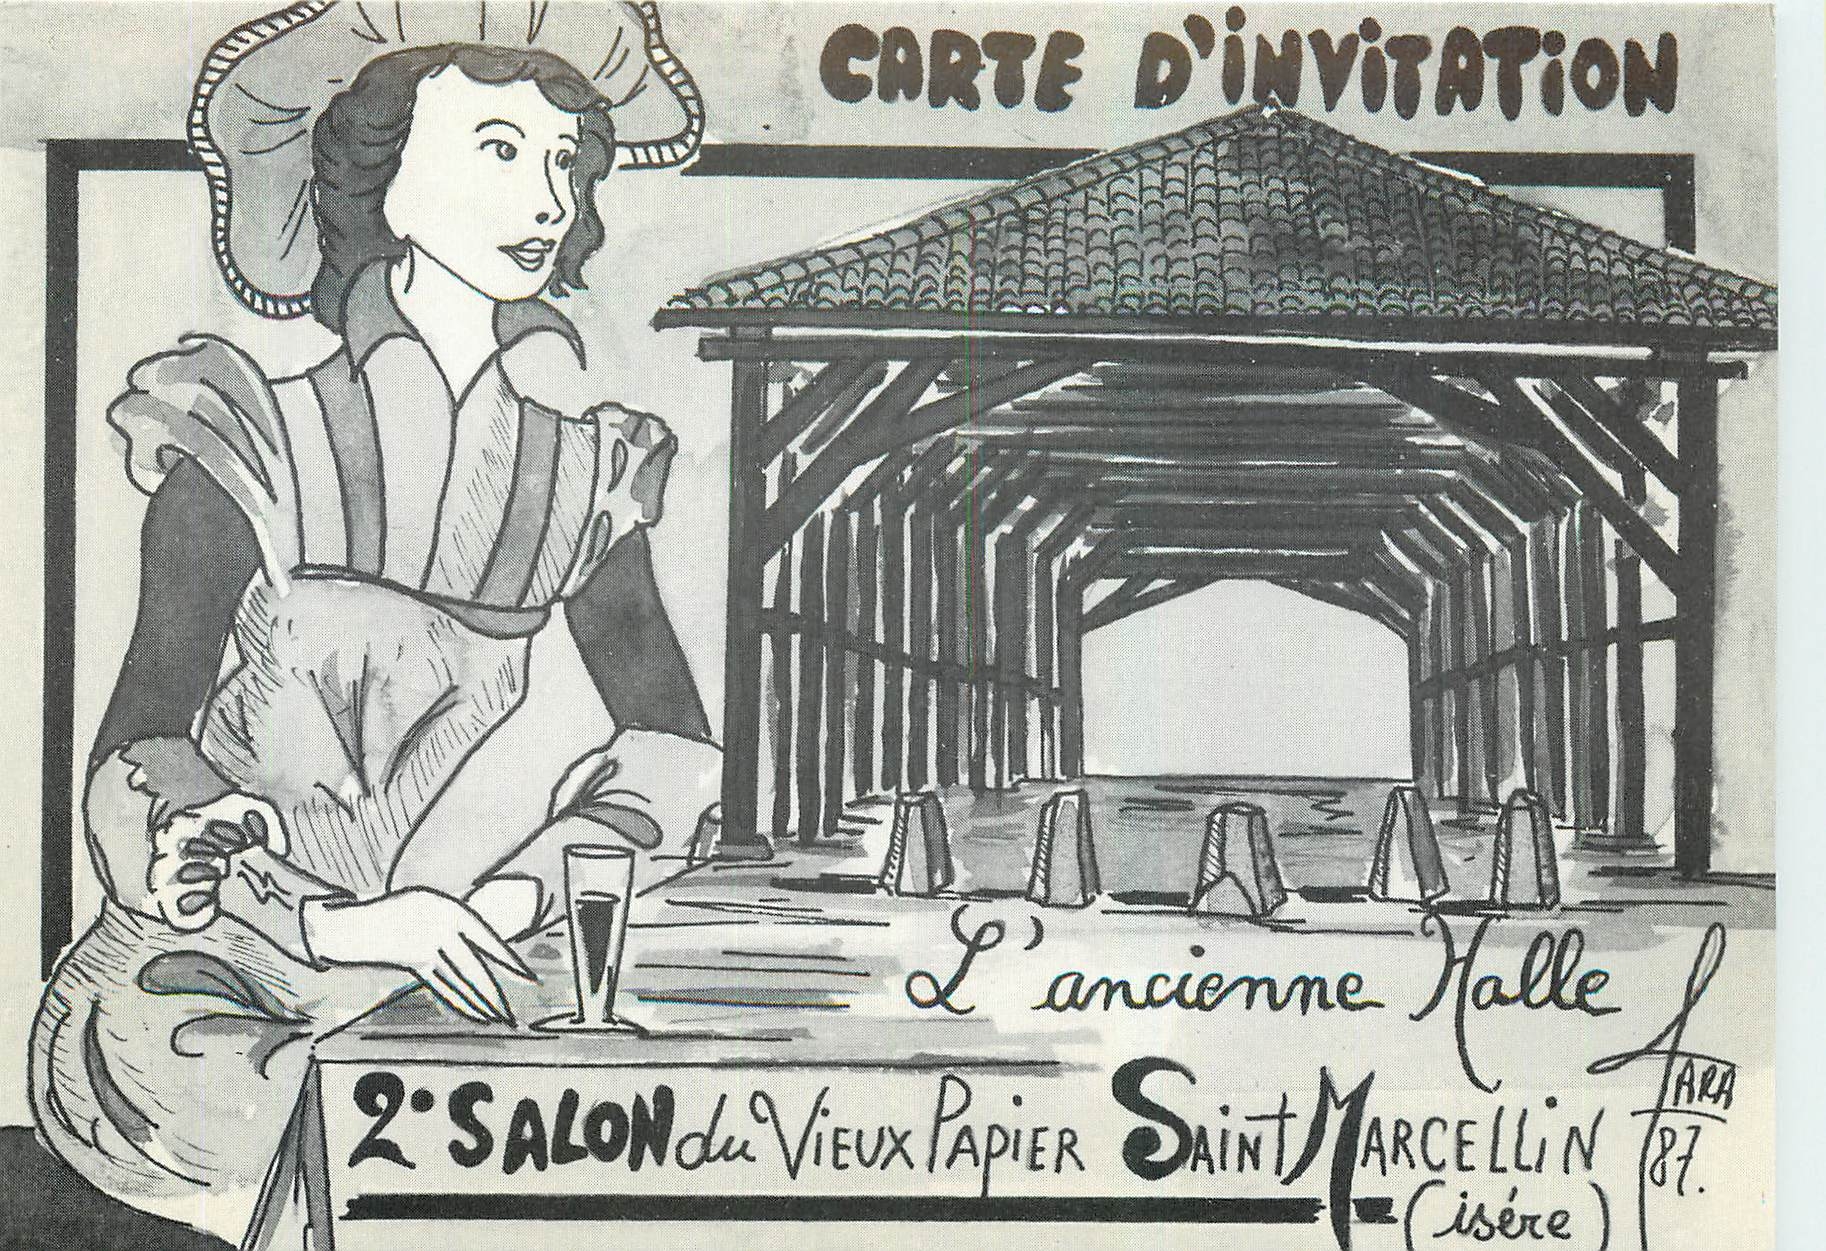 CARTE D'iNViTATiON
L'ancienne Halle
2e SALON du ViEUX PAPiER SAiNT MARCELLiN
(isére)
TARA
87.